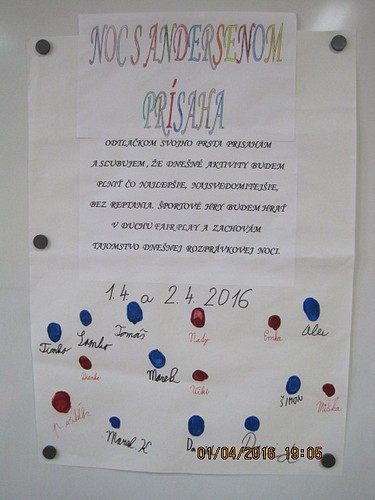 NOC S ANDERSENOM
PRÍSAHA
ODTLAČKOM SVOJHO PRSTA PRISAHÁM
A SĽUBUJEM, ŽE DNEŠNÉ AKTIVITY BUDEM
PLNIŤ ČO NAJLEPŠIE, NAJSVEDOMITEJŠIE,
BEZ REPTANIA. ŠPORTOVÉ HRY BUDEM HRAŤ
V DUCHU FAIR PLAY A ZACHOVÁM
TAJOMSTVO DNEŠNEJ ROZPRÁVKOVEJ NOCI.
1.4. a 2.4. 2016
Timko
Tomáš
Naty
Emka
Alex
Marek
ŠIMON
Marek K
01/04/2016 19:05